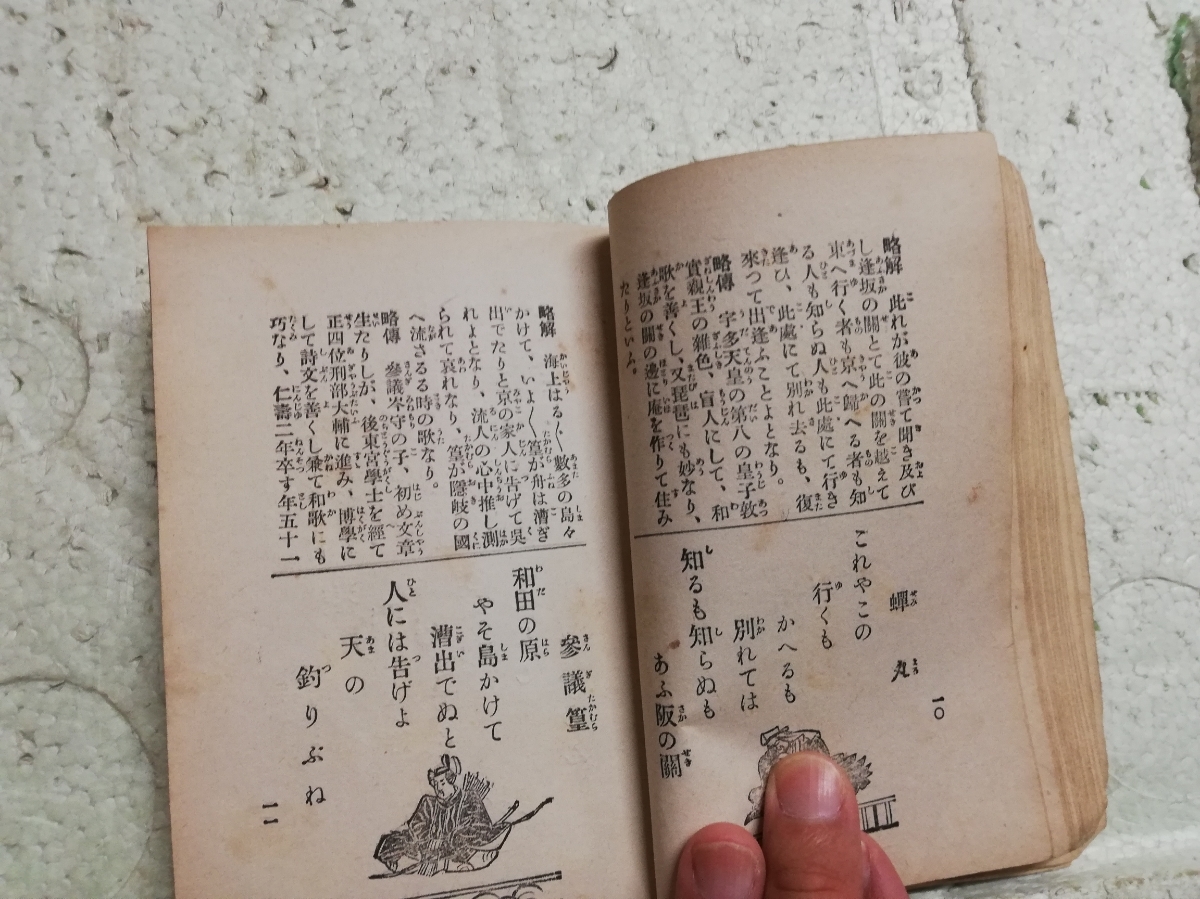 略解　此れが彼の嘗て聞き及び
し逢坂の關とて此の關を越えて
東へ行く者も京へ歸へる者も知
る人も知らぬ人も此處にて行き
逢ひ、此處にて別れ去るも、復
來つて出逢ふことよとなり。
略傳　宇多天皇の第八の皇子敦
實親王の雜色、盲人にして、和
歌を善くし、又琵琶にも妙なり、
逢坂の關の邊に庵を作りて住み
たりといふ。
蟬丸
これやこの
行くも
かへるも
別れては
知るも知らぬも
あふ阪の關
一〇
略解　海上はる〲數多の島々
かけて、いよ〱篁が舟は漕ぎ
出でたりと京の家人に告げて吳
れよとなり、流人の心中推し測
られて哀れなり、篁が隱岐の國
へ流さるる時の歌なり。
略傳　參議岑守の子、初め文章
生たりしが、後東宮學士を經て
正四位刑部大輔に進み、博學に
して詩文を善くし兼て和歌にも
巧なり、仁壽二年卒す年五十一
參議篁
和田の原
やそ島かけて
漕出でぬと
人には告げよ
天の
釣りぶね
一一